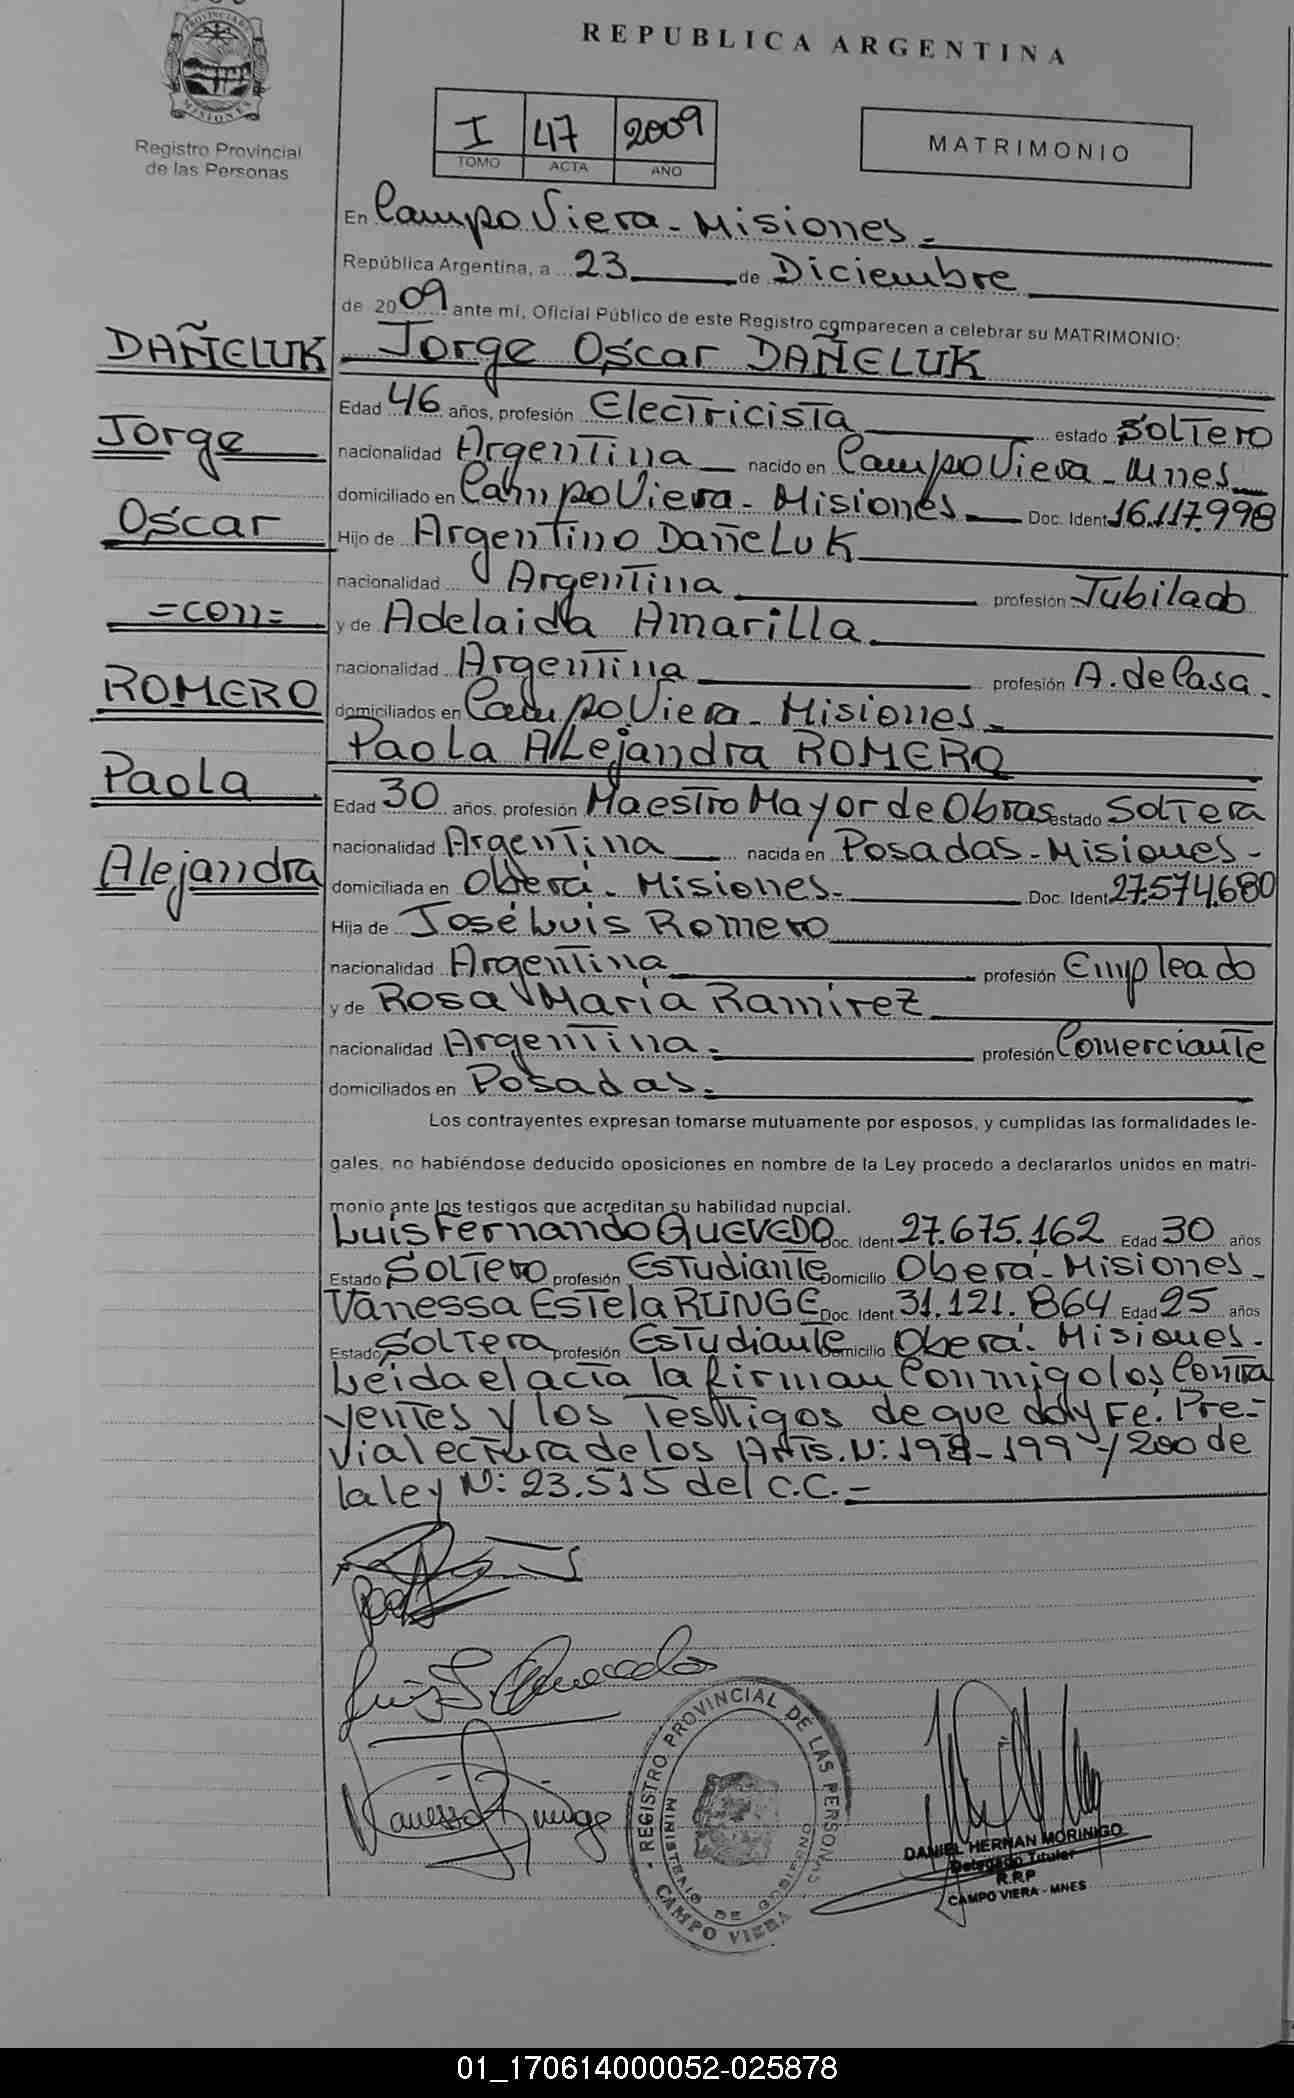 PROVINCIA DE
MISIONES
Registro Provincial
de las Personas
REPUBLICA ARGENTINA
I 47 2009
TOMO ACTA AÑO
MATRIMONIO
En Campo Viera - Misiones.-
República Argentina, a 23 de Diciembre
de 2009 ante mí, Oficial Público de este Registro comparecen a celebrar su MATRIMONIO:
DAÑELUK Jorge Oscar DAÑELUK
Edad 46 años, profesión Electricista estado Soltero
Jorge nacionalidad Argentina nacido en Campo Viera - Mnes
domiciliado en Campo Viera - Misiones Doc. Ident 16.117.998
Oscar Hijo de Argentino Dañeluk
nacionalidad Argentina profesión Jubilado
=con= y de Adelaida Amarilla
nacionalidad Argentina profesión A. de Casa.
ROMERO domiciliados en Campo Viera - Misiones
Paola Alejandra ROMERO
Paola Edad 30 años, profesión Maestro Mayor de Obras estado Soltera
nacionalidad Argentina nacida en Posadas - Misiones -
Alejandra domiciliada en Oberá - Misiones. Doc. Ident 27.574.680
Hija de José Luis Romero
nacionalidad Argentina profesión Empleado
y de Rosa María Ramirez
nacionalidad Argentina. profesión Comerciante
domiciliados en Posadas.
Los contrayentes expresan tomarse mutuamente por esposos, y cumplidas las formalidades le-
gales, no habiéndose deducido oposiciones en nombre de la Ley procedo a declararlos unidos en matri-
monio ante los testigos que acreditan su habilidad nupcial.
Luis Fernando QUEVEDO Doc. Ident 27.675.162 Edad 30 años
Estado Soltero profesión Estudiante Domicilio Oberá - Misiones -
Vanessa Estela RUNGE Doc. Ident 31.121.864 Edad 25 años
Estado Soltera profesión Estudiante Domicilio Oberá. Misiones.
Leída el acta la firman conmigo los contra
yentes y los testigos de que doy Fé. Pre-
via lectura de los Arts. N: 198-199 y 200 de
la ley N: 23.515 del C.C.-
Luis F. Quevedo
Vanessa Runge
- REGISTRO PROVINCIAL DE LAS PERSONAS -
MINISTERIO DE GOBIERNO
CAMPO VIERA
DANIEL HERNAN MORINIGO
Delegado Titular
R.R.P
CAMPO VIERA - MNES
01_170614000052-025878